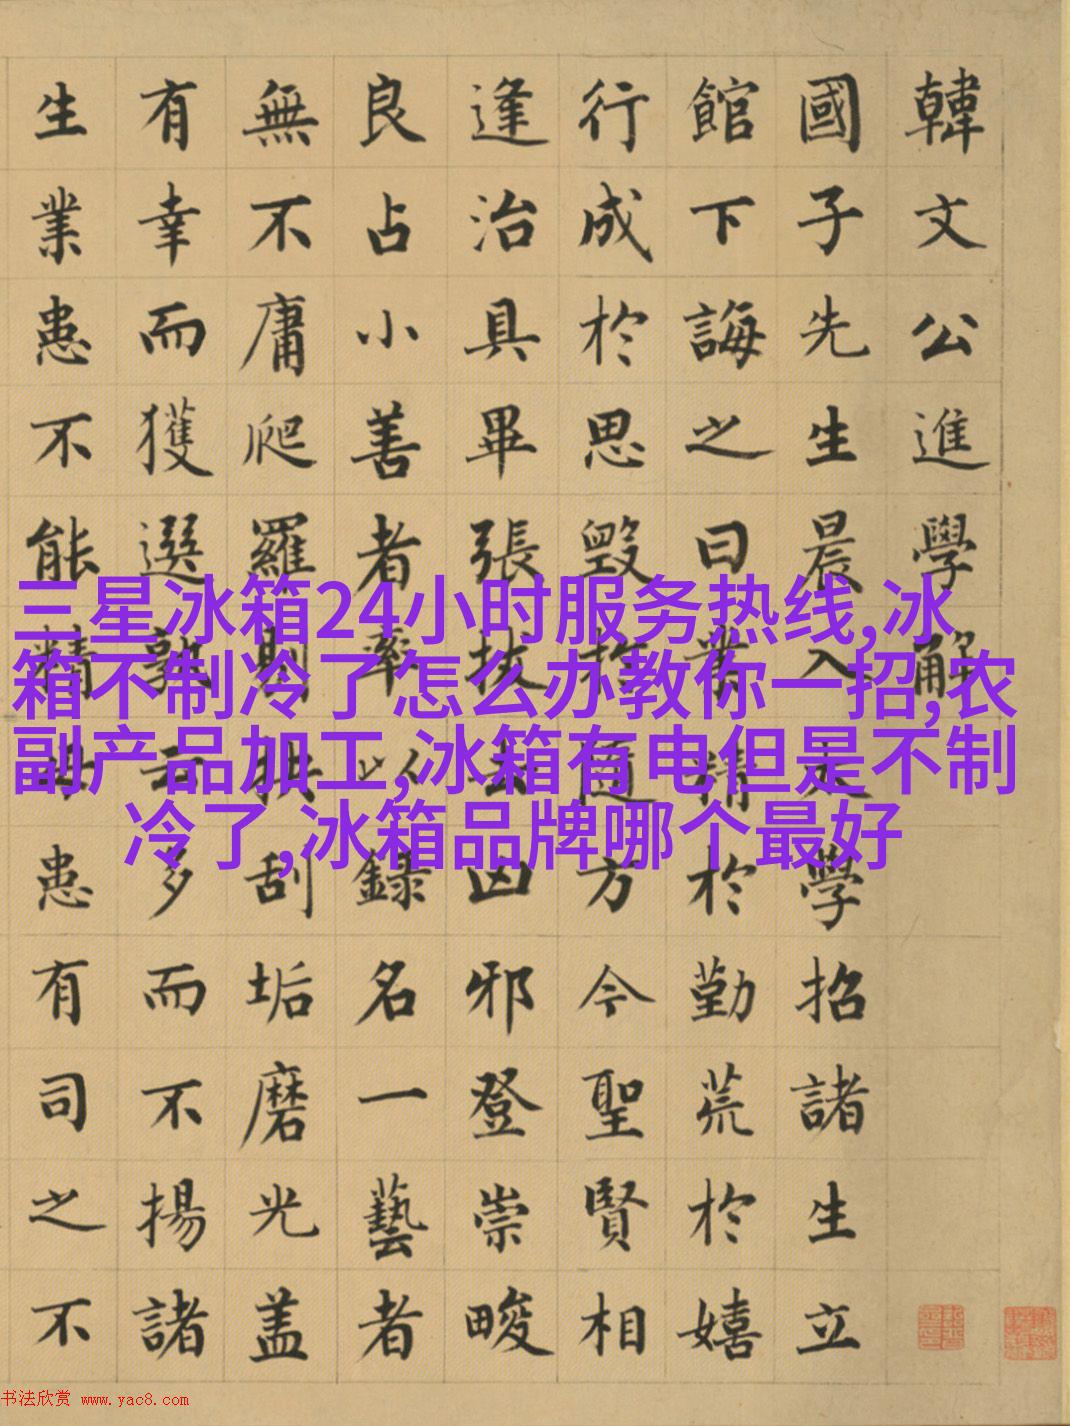 韓文公進學解
國子先生晨入太學招諸生立
館下誨之曰業精於勤荒於嬉
行成於思毀於隨方今聖賢相
逢治具畢張拔去凶邪登崇畯
良占小善者率以錄名一藝者
無不庸爬羅剔抉刮垢磨光盖
有幸而獲選孰云多而不揚諸
生業患不能精毋患有司之不
三星冰箱24小时服务热线,冰
箱不制冷了怎么办教你一招,农
副产品加工,冰箱有电但是不制
冷了,冰箱品牌哪个最好
书法欣赏 www.yac8.com